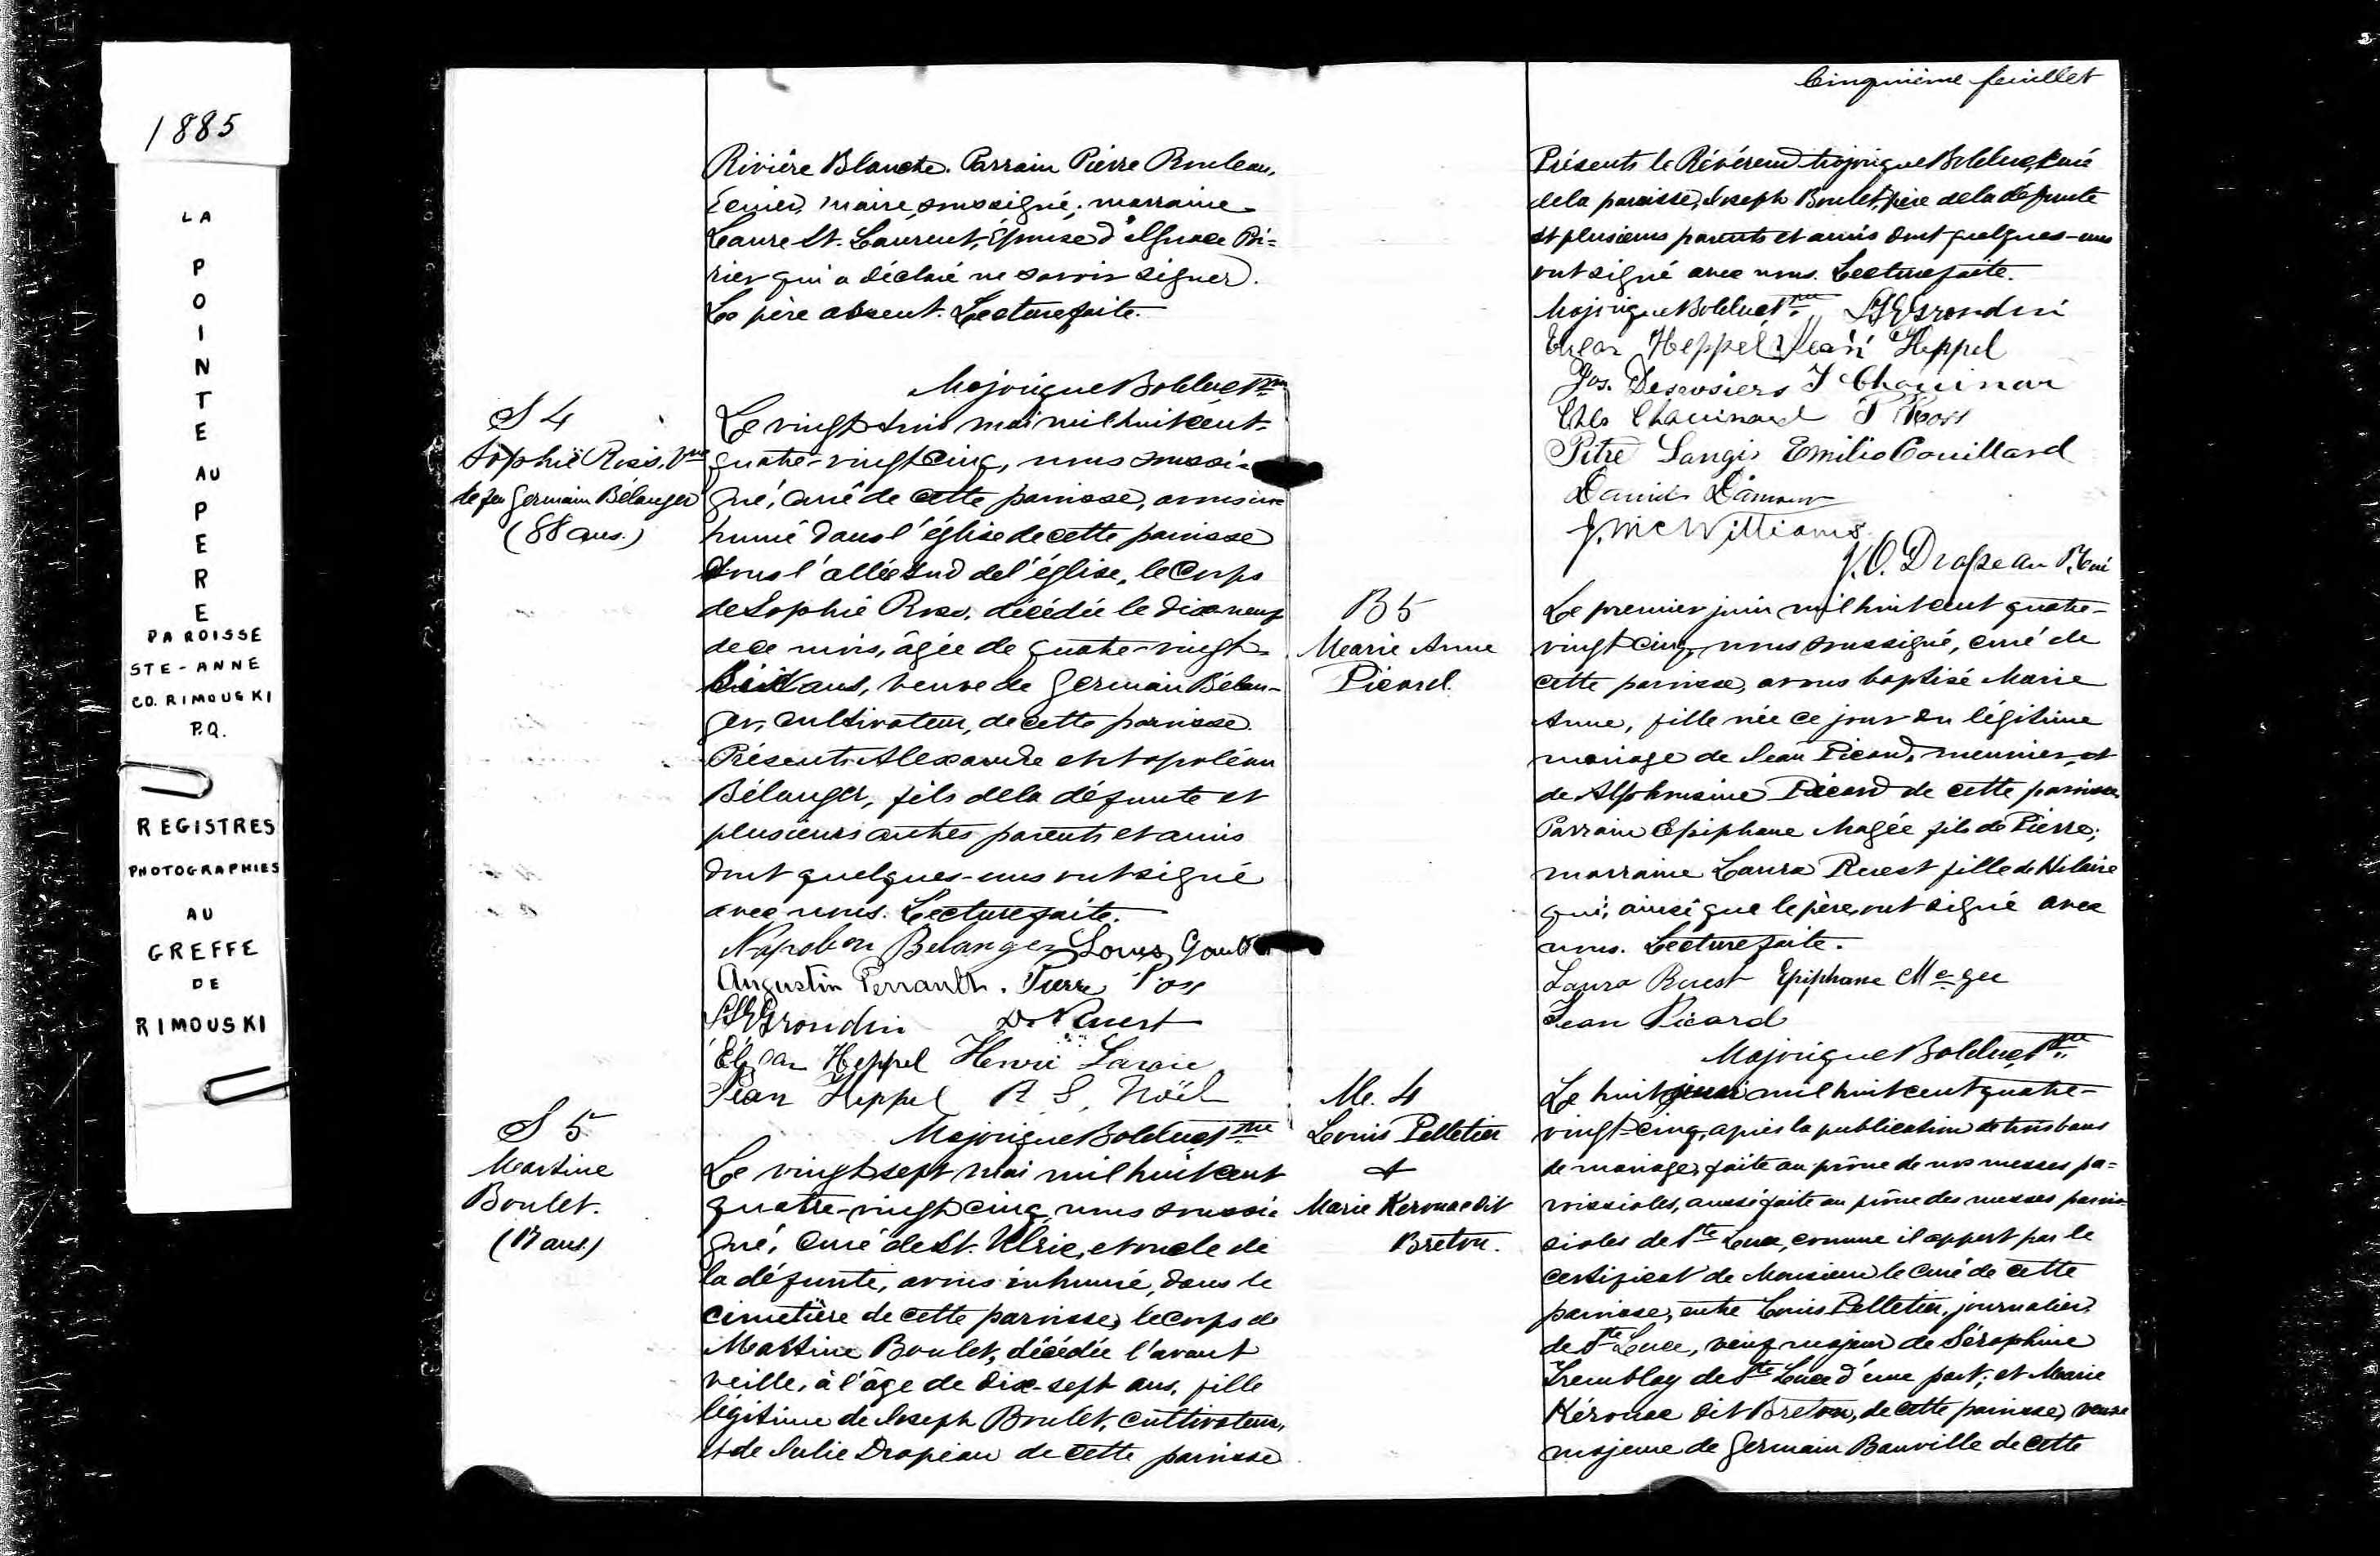 1885
LA
POINTE
AU
PERE
PAROISSE
STE-ANNE
CO. RIMOUSKI
P.Q.
REGISTRES
PHOTOGRAPHIES
AU
GREFFE
DE
RIMOUSKI
Rivière Blanche. Parrain Pierre Rouleau,
Ecuier, maire, soussigné; marraine
Laure St. Laurent, épouse d'Ignace Poi=
rier qui a déclaré ne savoir signer.
Le père absent. Lecture faite.
Majorique Bolduc Ptre
S 4
Sophie Ross, Vve
de feu Germain Bélanger
(88 ans.)
Le vingt trois mai mil huit cent-
quatre-vingt cinq, nous soussi-
gné, curé de cette paroisse, avons in-
humé dans l'église de cette paroisse
sous l'allée sud de l'église, le corps
de Sophie Ross, décédée le dix neuf
de ce mois, âgée de quatre-vingt-
huit ans, veuve de Germain Bélan-
ger, cultivateur, de cette paroisse.
Présents Alexandre et Napoléon
Bélanger, fils de la défunte et
plusieurs autres parents et amis
dont quelques-uns ont signé
avec nous. Lecture faite.
Napoleon Belanger Louis
Augustin Perrault. Pierre Ross
Grondin Ruest
Elzear Heppel Henri Lavoie
Jean Heppel A S, Noël
Majorique Bolduc Ptre
S 5
Martine
Boulet.
(17 ans.)
Le vingt sept mai mil huit cent
quatre-vingt cinq, nous soussi-
gné, curé de St. Ulric, et oncle de
la défunte, avons inhumé, dans le
cimetière de cette paroisse, le corps de
Martine Boulet, décédée l'avant
veille, à l'âge de dix-sept ans, fille
légitime de Joseph Boulet, cultivateur,
et de Julie Drapeau de cette paroisse
Cinquième feuillet
Présents le Révérend Majorique Bolduc, curé
de la paroisse, Joseph Boulet, père de la défunte
et plusieurs parents et amis dont quelques-uns
ont signé avec nous. Lecture faite.
Majorique Bolduc Ptre Grondin
Elzear Heppel Jean Heppel
Jos. Desrosiers J Chouinar
Chs Chouinard P Ross
Pitre Langis Emilio Couillard
David Damour
J. McWilliams
J. O. Drapeau Ptre Curé
B 5
Marie Anne
Picard.
Le premier juin mil huit cent quatre-
vingt cinq, nous soussigné, curé de
cette paroisse, avons baptisé Marie
Anne, fille née ce jour du légitime
mariage de Jean Picard, meunier, et
de Alphonsine Picard de cette paroisse
Parrain Epiphane Magée fils de Pierre;
marraine Laura Ruest fille de Hilaire
qui, ainsi que le père, ont signé avec
nous. Lecture faite.
Laura Ruest Epiphane Mcgee
Jean Picard
Majorique Bolduc Ptre
M. 4
Louis Pelletier
&
Marie Kerouac dit
Breton.
Le huit juin mil huit cent quatre-
vingt-cinq, après la publication de trois bans
de mariage, faite au prône de nos messes pa=
roissiales, aussi faite au prône des messes parois-
siales de Ste Luce, comme il appert par le
certificat de Monsieur le curé de cette
paroisse, entre Louis Pelletier, journalier,
de Ste Luce, veuf majeur de Séraphine
Tremblay de Ste Luce d'une part; et Marie
Kérouac dit Breton, de cette paroisse, veuve
majeure de Germain Banville de cette